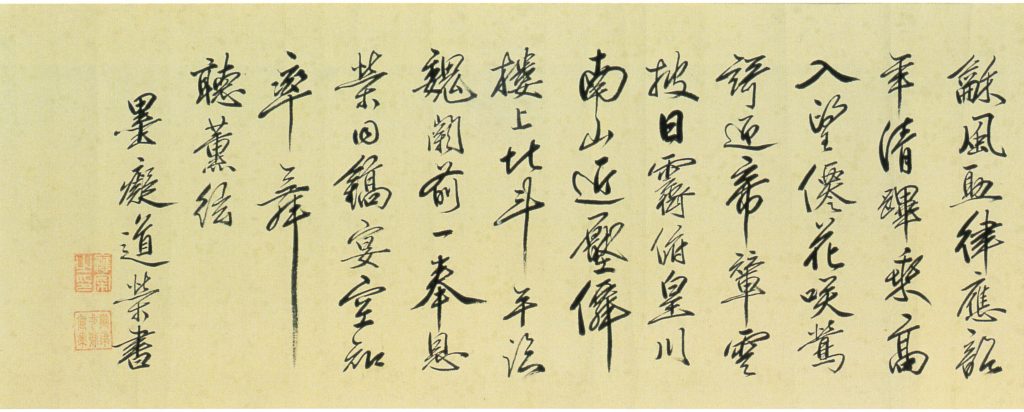 龢風助律應韶
年清蹕乘高
入望僊花咲鶯
謌迎帝輦雲
披日霽俯皇川
南山近壓僊
樓上北斗平臨
魏闕前一奉恩
榮同鎬宴空知
率舞
聽薰絃
墨癡道榮書